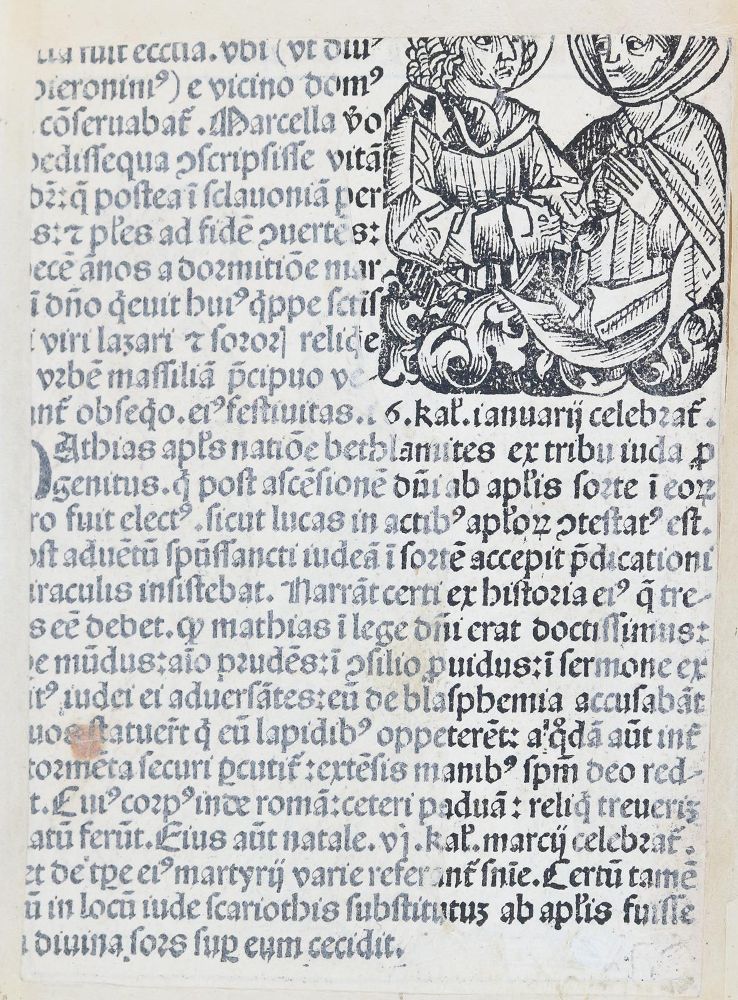 fuit ecclia. vbi (vt diuꝰ
hieroniniꝰ) e vicino domꝰ
cōseruabat̄. Marcella v̄o
pedissequa ↄscripsisse vitā
q̄ postea ī sclauoniā per
s: ⁊ pl̄es ad fidē ↄuertēs:
ecē ānos a dormitiōe mar
ī dn̄o q̄euit huiꝰ q̄ppe sctīs
viri lazari ⁊ sororꝭ reliq̄e
vrbē massiliā p̄cipuo
obseq̄o. eiꝰ festiuitas. 16. kal̄. ianuarij celebrat̄.
Athias apl̄s natiōe bethlamites ex tribu iuda ꝓ
genitus. q̄ post ascēsionē dn̄i ab apl̄is sorte ī eoꝝ
ro fuit electꝰ. sicut lucas in actibꝰ apl̄oꝝ ↄtestatꝰ est.
ost aduētū spūssancti iudeā ī sortē accepit p̄dicationi
iraculis insistebat. Narrāt certi ex historia eiꝰ q̄ tre-
s eē debet. ꝙ mathias ī lege dn̄i erat doctissimus:
e mūdus: aīo prudēs: ī ↄsilio ꝓuidus: ī sermone ex
itꝰ iudei ei aduersātes: eū de blasphemia accusabāt
uos statuer̄t q̄ eū lapidibꝰ oppeterēt: a q̊dā aūt int̄
tormēta securi ꝑcutit̄: extēsis manibꝰ spm̄ deo red-
t. Cuiꝰ corpꝰ inde romā: ceteri paduā: reliq̄ treueriꝫ
atū ferūt. Eius aūt natale. vj. kal̄. marcij celebrat̄.
et de tꝑe eiꝰ martyrij varie referant̄ snīe. Certū tamē
ū in locū iude scariothis substitutuꝫ ab apl̄is fuisse
diuina sors suꝑ eum cecidit.